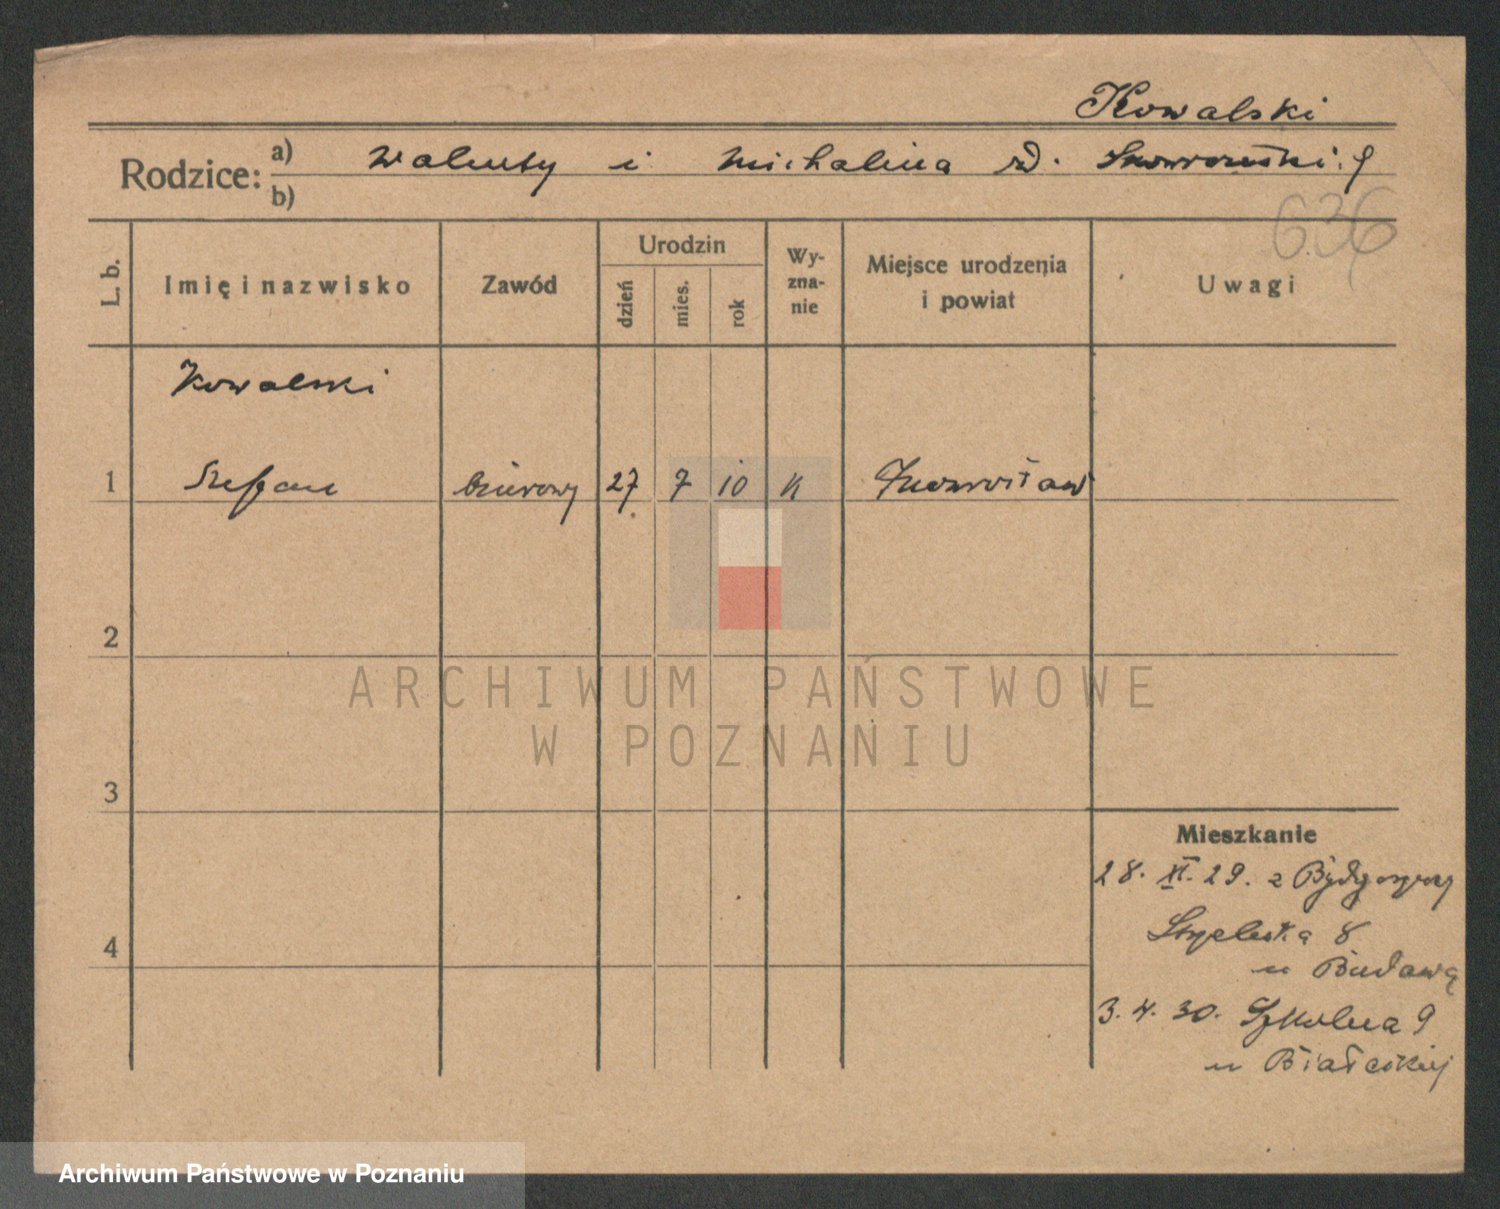 Kowalski
Rodzice: a) Walenty i Michalina rd.
b)
636
L. b.
Imię i nazwisko
Zawód
Urodzin
dzień
mies.
rok
Wy-
zna-
nie
Miejsce urodzenia
i powiat
Uwagi
Kowalski
1 Stefan biurowy 27 7 10 k Inowrocław
2
ARCHIWUM PAŃSTWOWE
W POZNANIU
3
4
Mieszkanie
28. XI. 29. z Bydgoszczy
Strzelecka 8
u
3. 4. 30. Szkolna 9
u
Archiwum Państwowe w Poznaniu